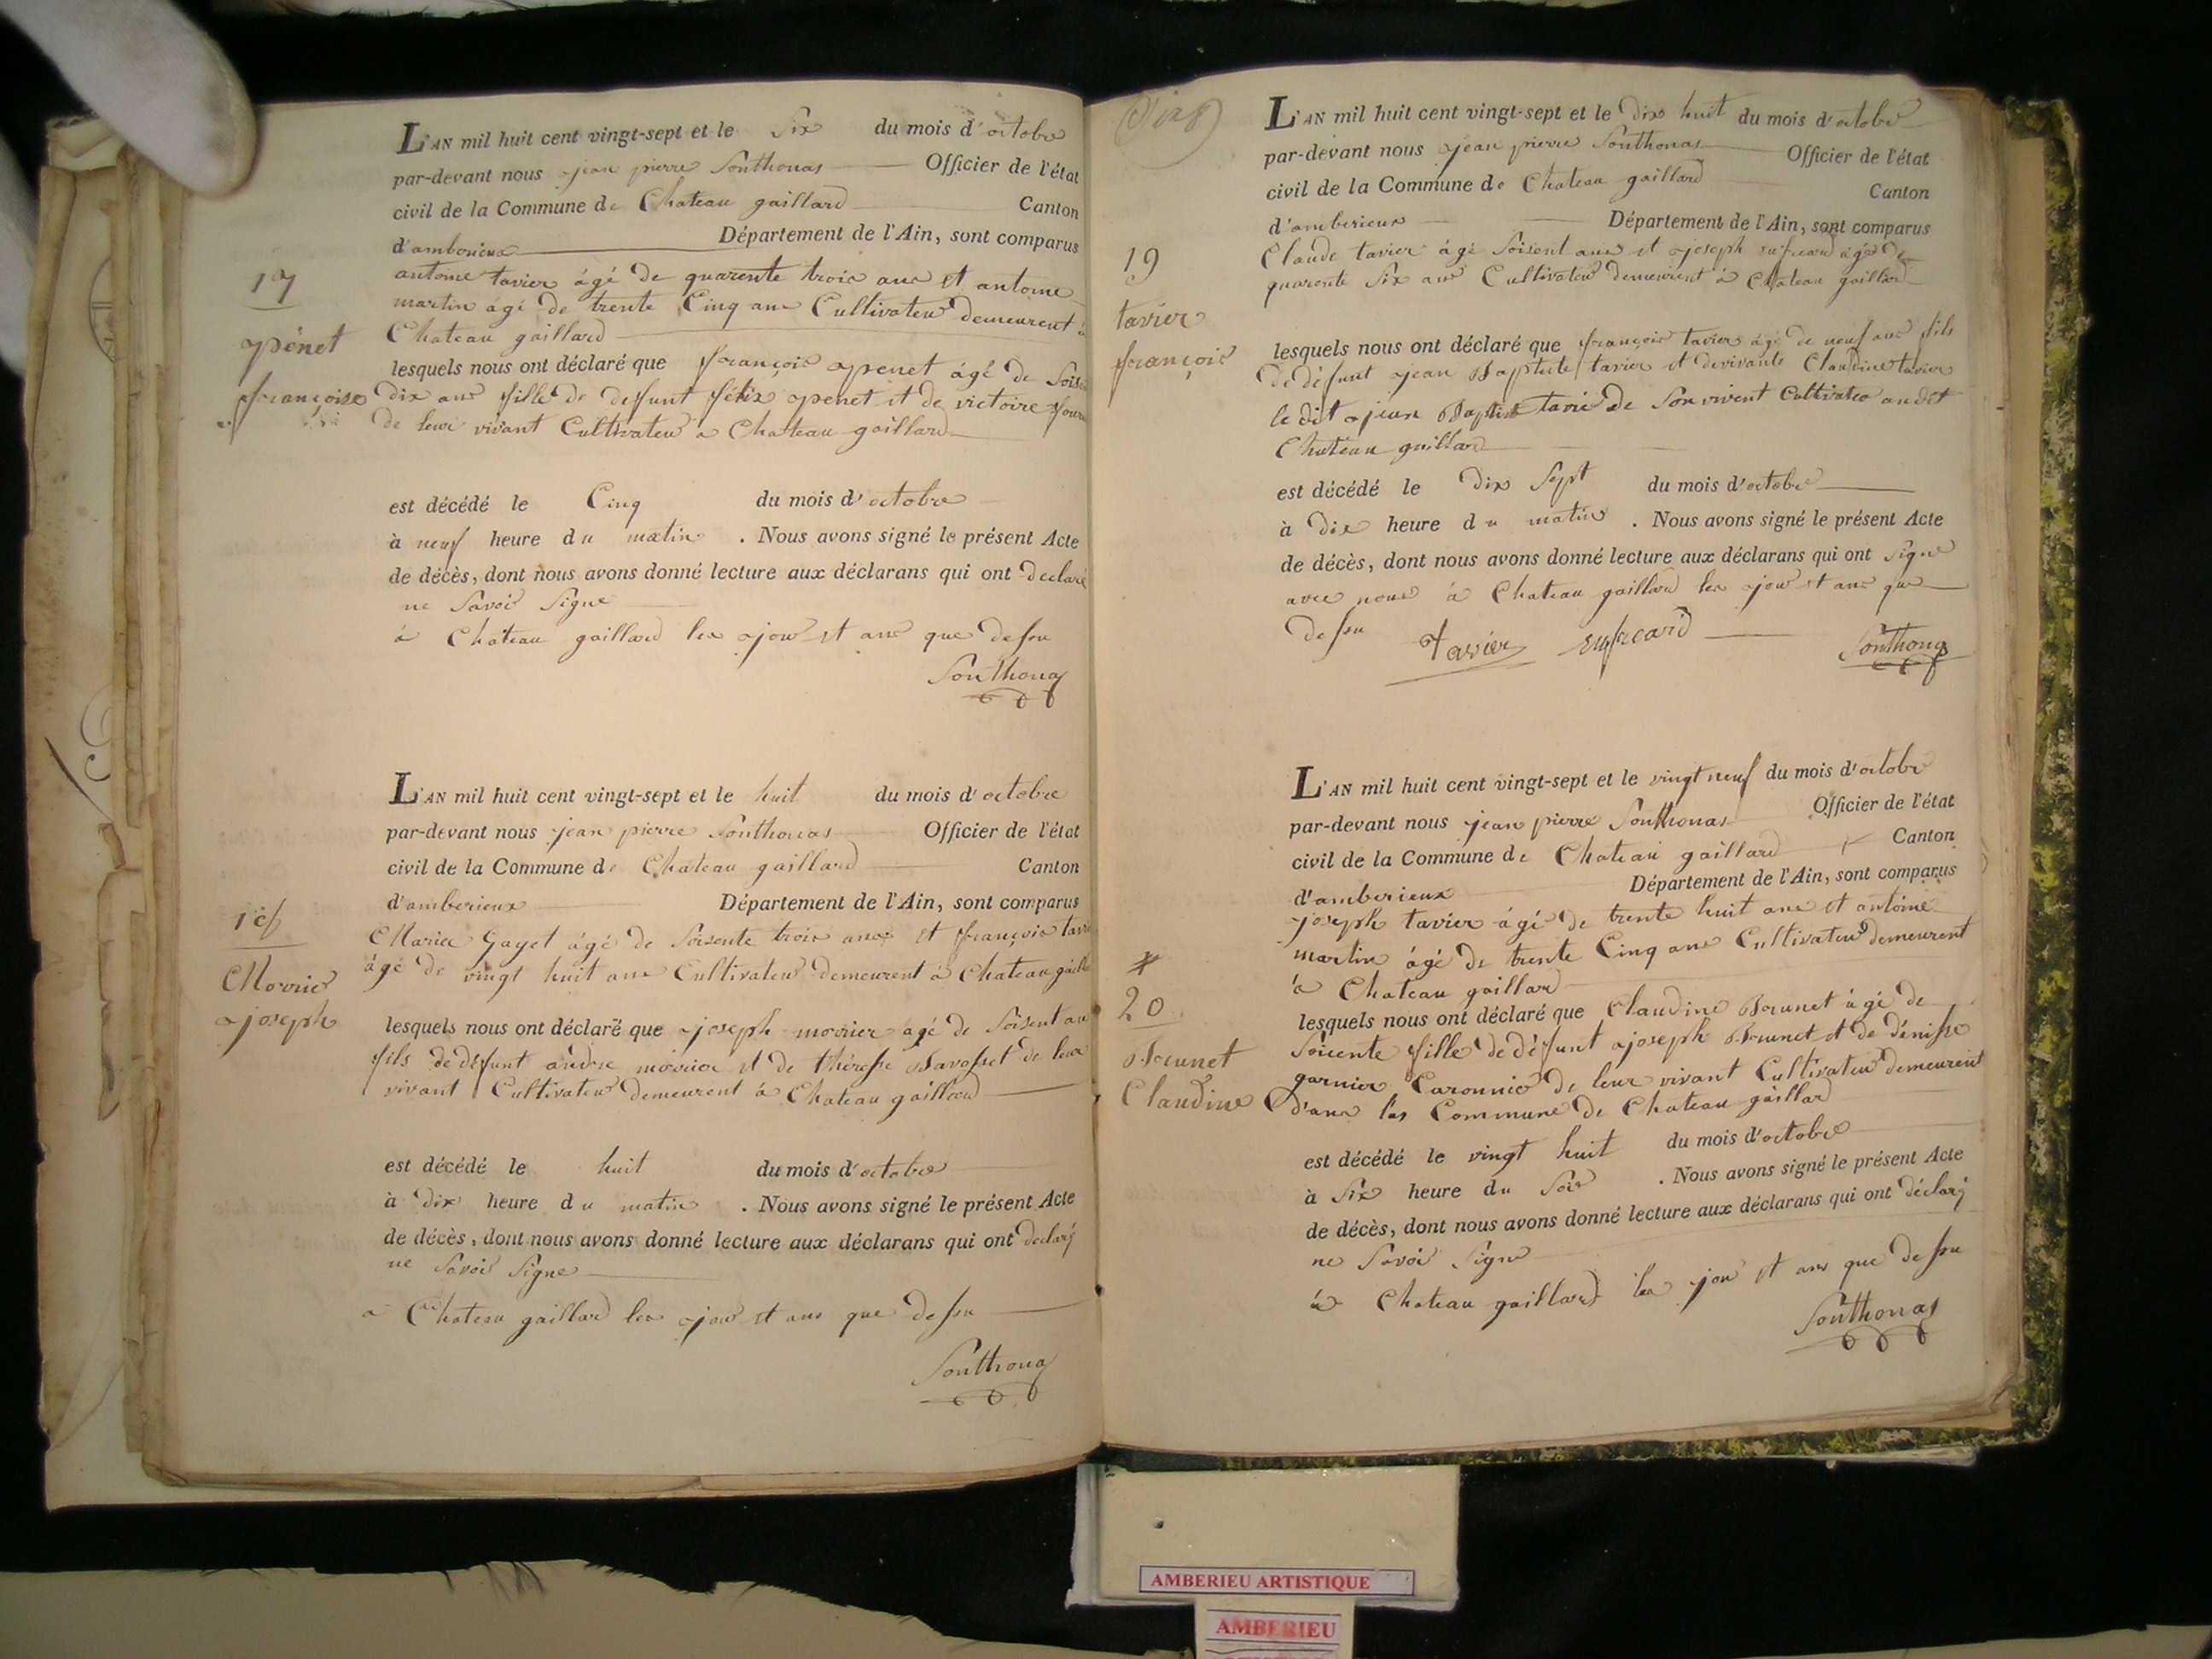 L'AN mil huit cent vingt-sept et le six du mois d'octobre
par-devant nous jean pierre Sonthonas Officier de l'état
civil de la Commune de Chateau gaillard Canton
d'amberieux Département de l'Ain, sont comparus
17
antoine tavier âgé de quarente trois ans et antoine
martin âgé de trente Cinq ans Cultivateur demeurent à
Chateau gaillard
pénet
lesquels nous ont déclaré que françoise penet âgé de
françoise
dix ans fille de defunt félix penet et de victoire
de leur vivant Cultivateur a Chateau gaillard
est décédé le Cinq du mois d'octobre
à neuf heure du matin . Nous avons signé le présent Acte
de décès, dont nous avons donné lecture aux déclarans qui ont declaré
ne Savoir Signe
à Chateau gaillard les jour et ans que dessu
Sonthonas
L'AN mil huit cent vingt-sept et le huit du mois d'octobre
par-devant nous jean pierre Sonthonas Officier de l'état
civil de la Commune de Chateau gaillard Canton
d'amberieux Département de l'Ain, sont comparus
18
Gayet âgé de Soisente trois ans et françois
âgé de vingt huit ans Cultivateur demeurent à Chateau
Morrier
joseph
lesquels nous ont déclaré que joseph morrier agé de Soisent
fils de défunt andre morrier et de thérésse Bavosset de leur
vivant Cultivateur demeurent à Chateau gaillard
est décédé le huit du mois d'octobre
à dix heure du matin . Nous avons signé le présent Acte
de décès, dont nous avons donné lecture aux déclarans qui ont declaré
ne Savoir Signe
a Chateau gaillard les jour et ans que dessu
Sonthonas
L'AN mil huit cent vingt-sept et le dix huit du mois d'octobre
par-devant nous jean pierre Sonthonas Officier de l'état
civil de la Commune de Chateau gaillard Canton
d'amberieux Département de l'Ain, sont comparus
19
Claude tavier âgé Soisent ans et joseph âgé de
quarente Six ans Cultivateur demeurent a Chateau gaillard
tavier
françois
lesquels nous ont déclaré que françois tavier âgé de neuf ans fils
de défunt jean Baptiste tavier et de vivante Claudine tavier
le dit jean Baptiste tavié de Son vivent Cultivateur audit
Chateau gaillard
est décédé le dix Sept du mois d'octobre
à dix heure du matin . Nous avons signé le présent Acte
de décès, dont nous avons donné lecture aux déclarans qui ont Signe
avec nous à Chateau gaillard les jour et ans que
dessu Tavier Sonthonas
L'AN mil huit cent vingt-sept et le vingt neuf du mois d'octobre
par-devant nous jean pierre Sonthonas Officier de l'état
civil de la Commune de Chateau gaillard Canton
d'amberieux Département de l'Ain, sont comparus
joseph tavier âgé de trente huit ans et antoine
martin âgé de trente Cinq ans Cultivateur demeurent
à Chateau gaillard
20
lesquels nous ont déclaré que Claudine Brunet âgé de
Brunet
Soicente fille de défunt joseph Brunet et de dénisse
Claudine
garnier Caronnier de leur vivant Cultivateur demeurent
d'ans las Commune de Chateau gaillard
est décédé le vingt huit du mois d'octobre
à Six heure du Soir . Nous avons signé le présent Acte
de décès, dont nous avons donné lecture aux déclarans qui ont déclaré
ne Savoir Signe
à Chateau gaillard les jour et ans que dessu
Sonthonas
AMBERIEU ARTISTIQUE
AMBERIEU